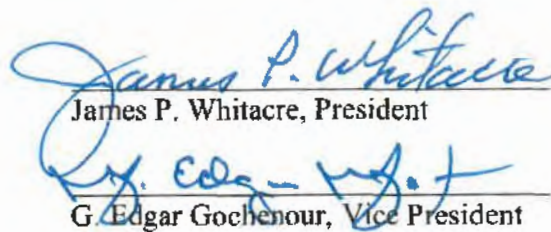 James P. Whitacre
James P. Whitacre, President
G. Edgar
G. Edgar Gochenour, Vice President